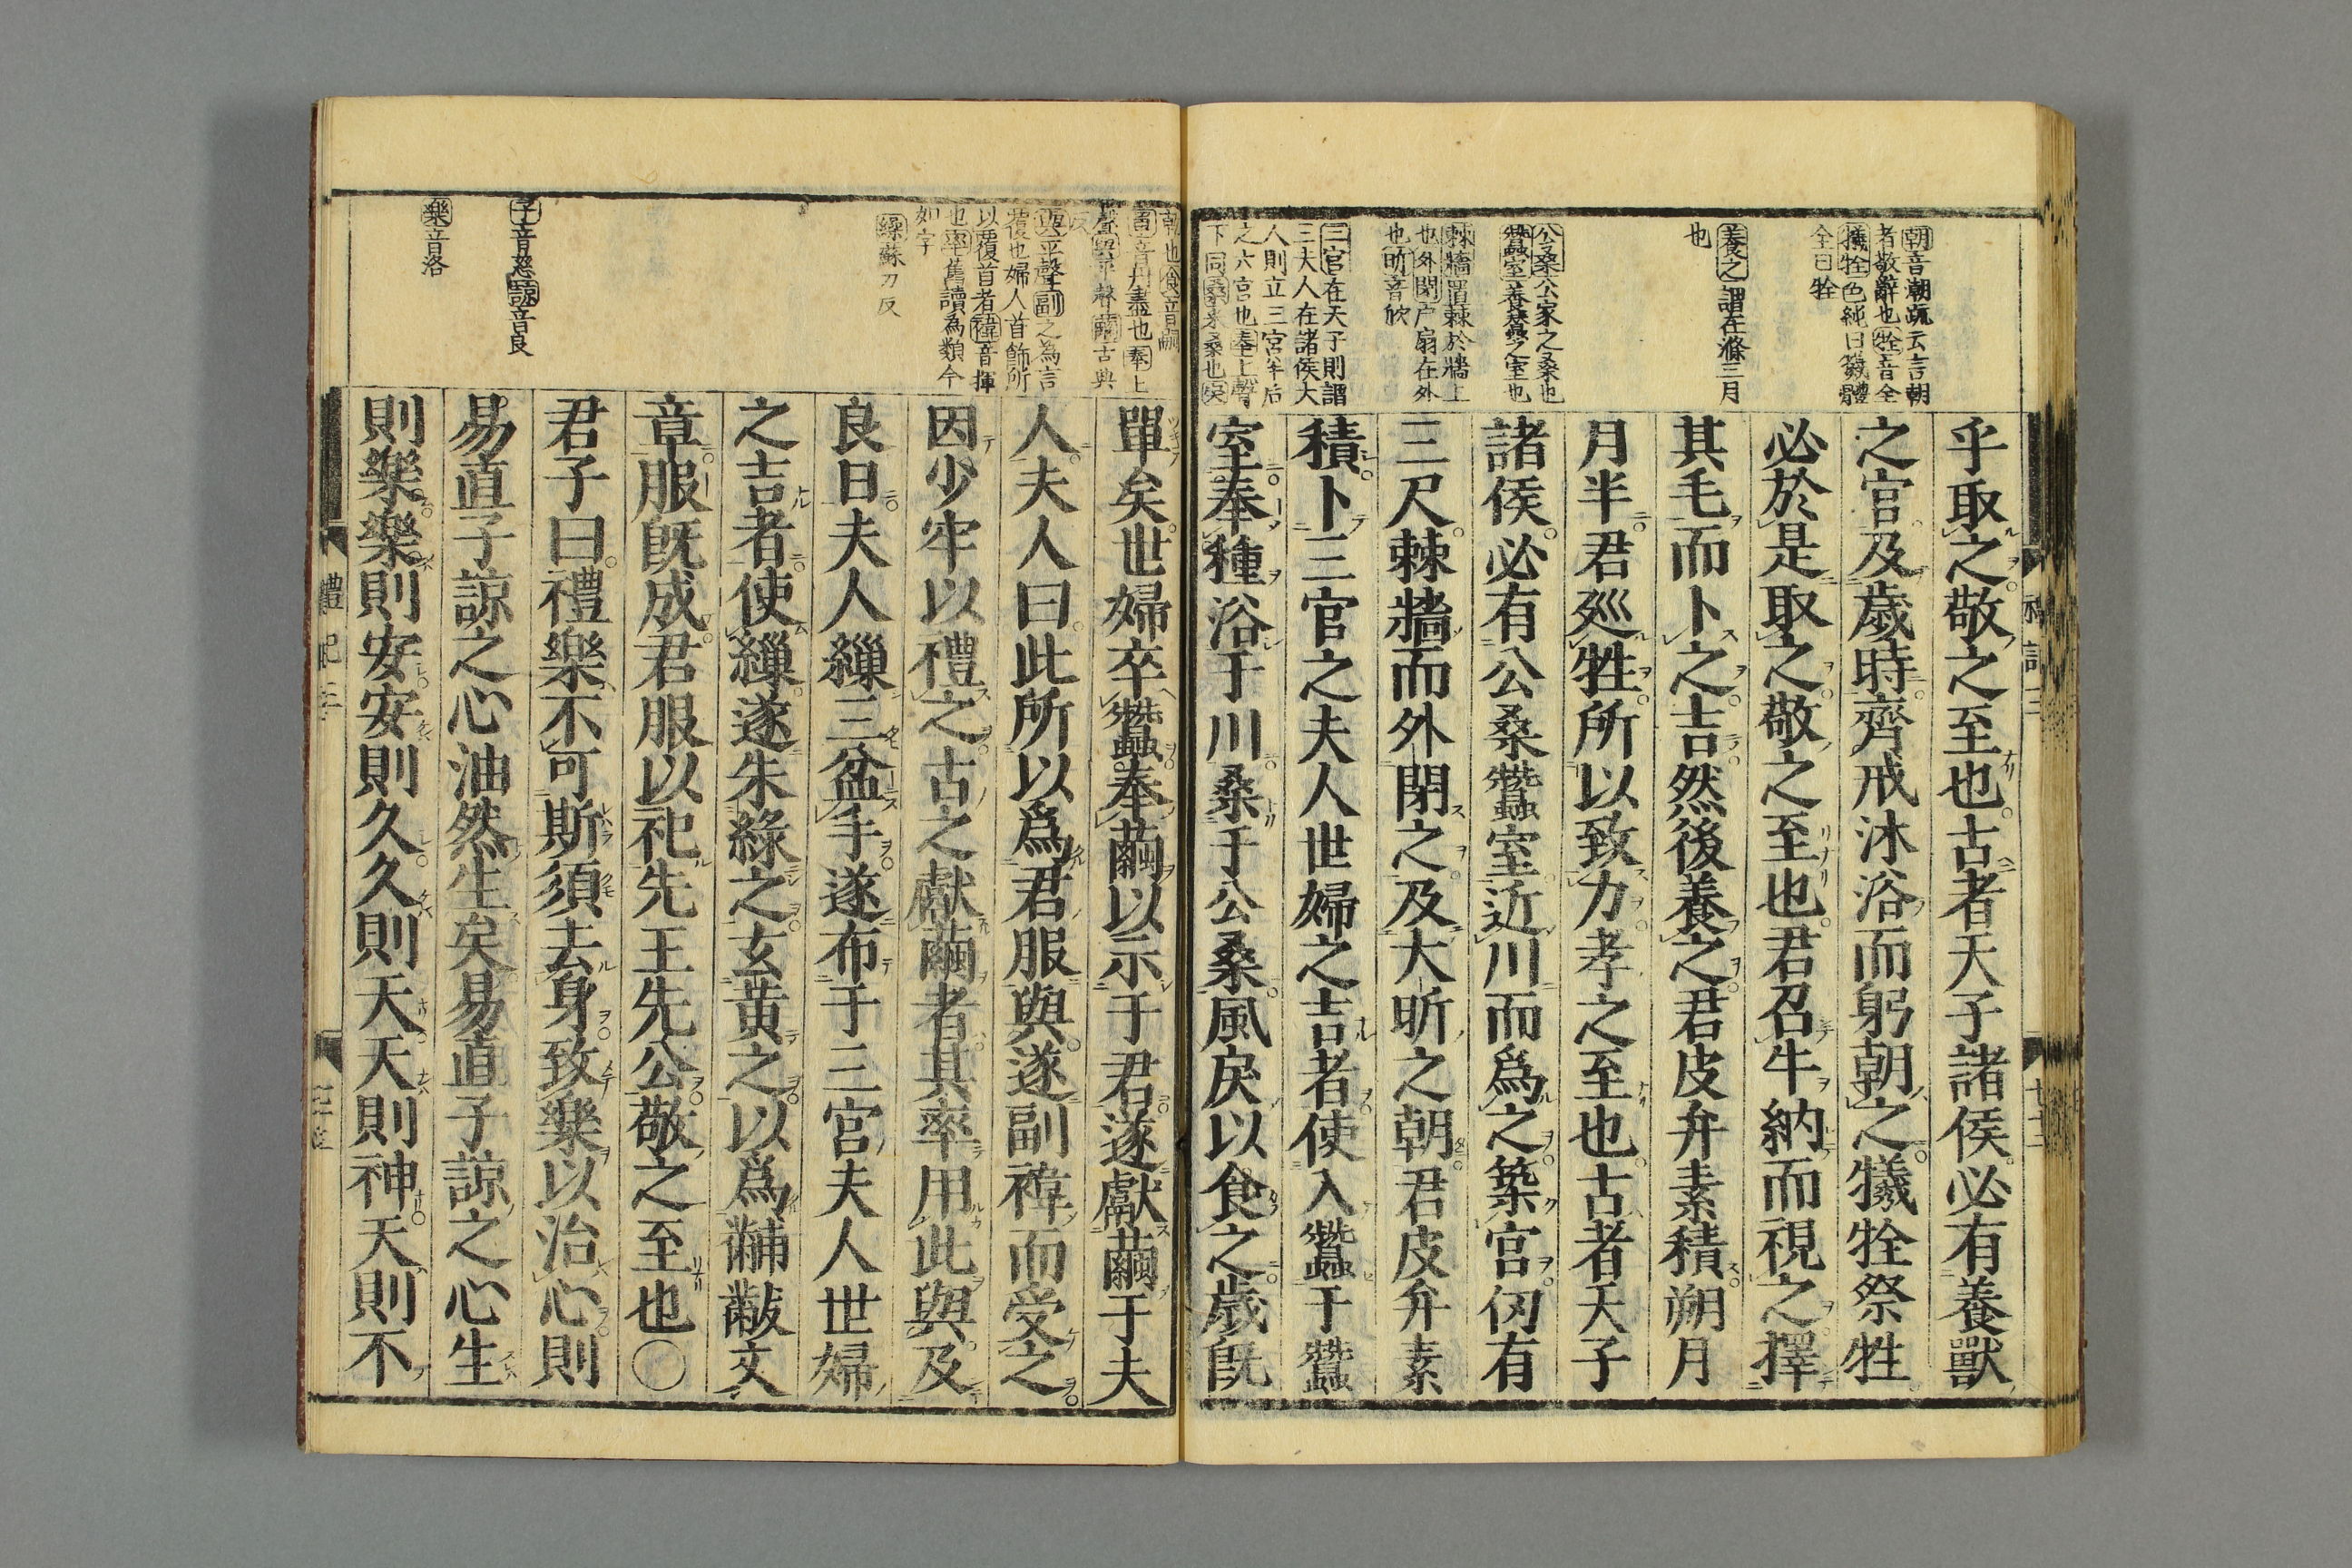 朝音潮疏云言朝
者敬辭也牷音全
犠牷色純曰犠體
全曰牷
養之謂在滌三月
也
公桑公家之桑也
蠶室養蠶之室也
棘牆置棘於牆上
也外閉户扇在外
也昕音欣
三宮在天子則謂
三夫人在諸侯大
人則立三宮半后
之六宮也奉上聲
下同桑采桑也戾
乎取之敬之至也古者天子諸侯必有養獸
之官及歲時齊戒沐浴而躬朝之犧牷祭牲
必於是取之敬之至也君召牛納而視之擇
其毛而卜之吉然後養之君皮弁素積朔月
月半君廵牲所以致力孝之至也古者天子
諸侯必有公桑蠶室近川而爲之築宮仞有
三尺棘牆而外閉之及大昕之朝君皮弁素
積卜三宮之夫人世婦之吉者使入蠶于蠶
室奉種浴于川桑于公桑風戾以食之歲既
朝也食音嗣
單音丹盡也奉上
聲與平聲繭古典
反
與平聲副之為言
覆也婦人首飾所
以覆首者褘音揮
也率舊讀為類今
如字
繰蘇刀反
子音慈諒音良
樂音洛
單矣世婦卒蠶奉繭以示于君遂獻繭于夫
人夫人曰此所以爲君服與遂副褘而受之
因少牢以禮之古之獻繭者其率用此與及
良日夫人繅三盆手遂布于三宮夫人世婦
之吉者使繅遂朱綠之玄黃之以爲黼黻文
章服既成君服以祀先王先公敬之至也〇
君子曰禮樂不可斯須去身致樂以治心則
易直子諒之心油然生矣易直子諒之心生
則樂樂則安安則久久則天天則神天則不
禮記三